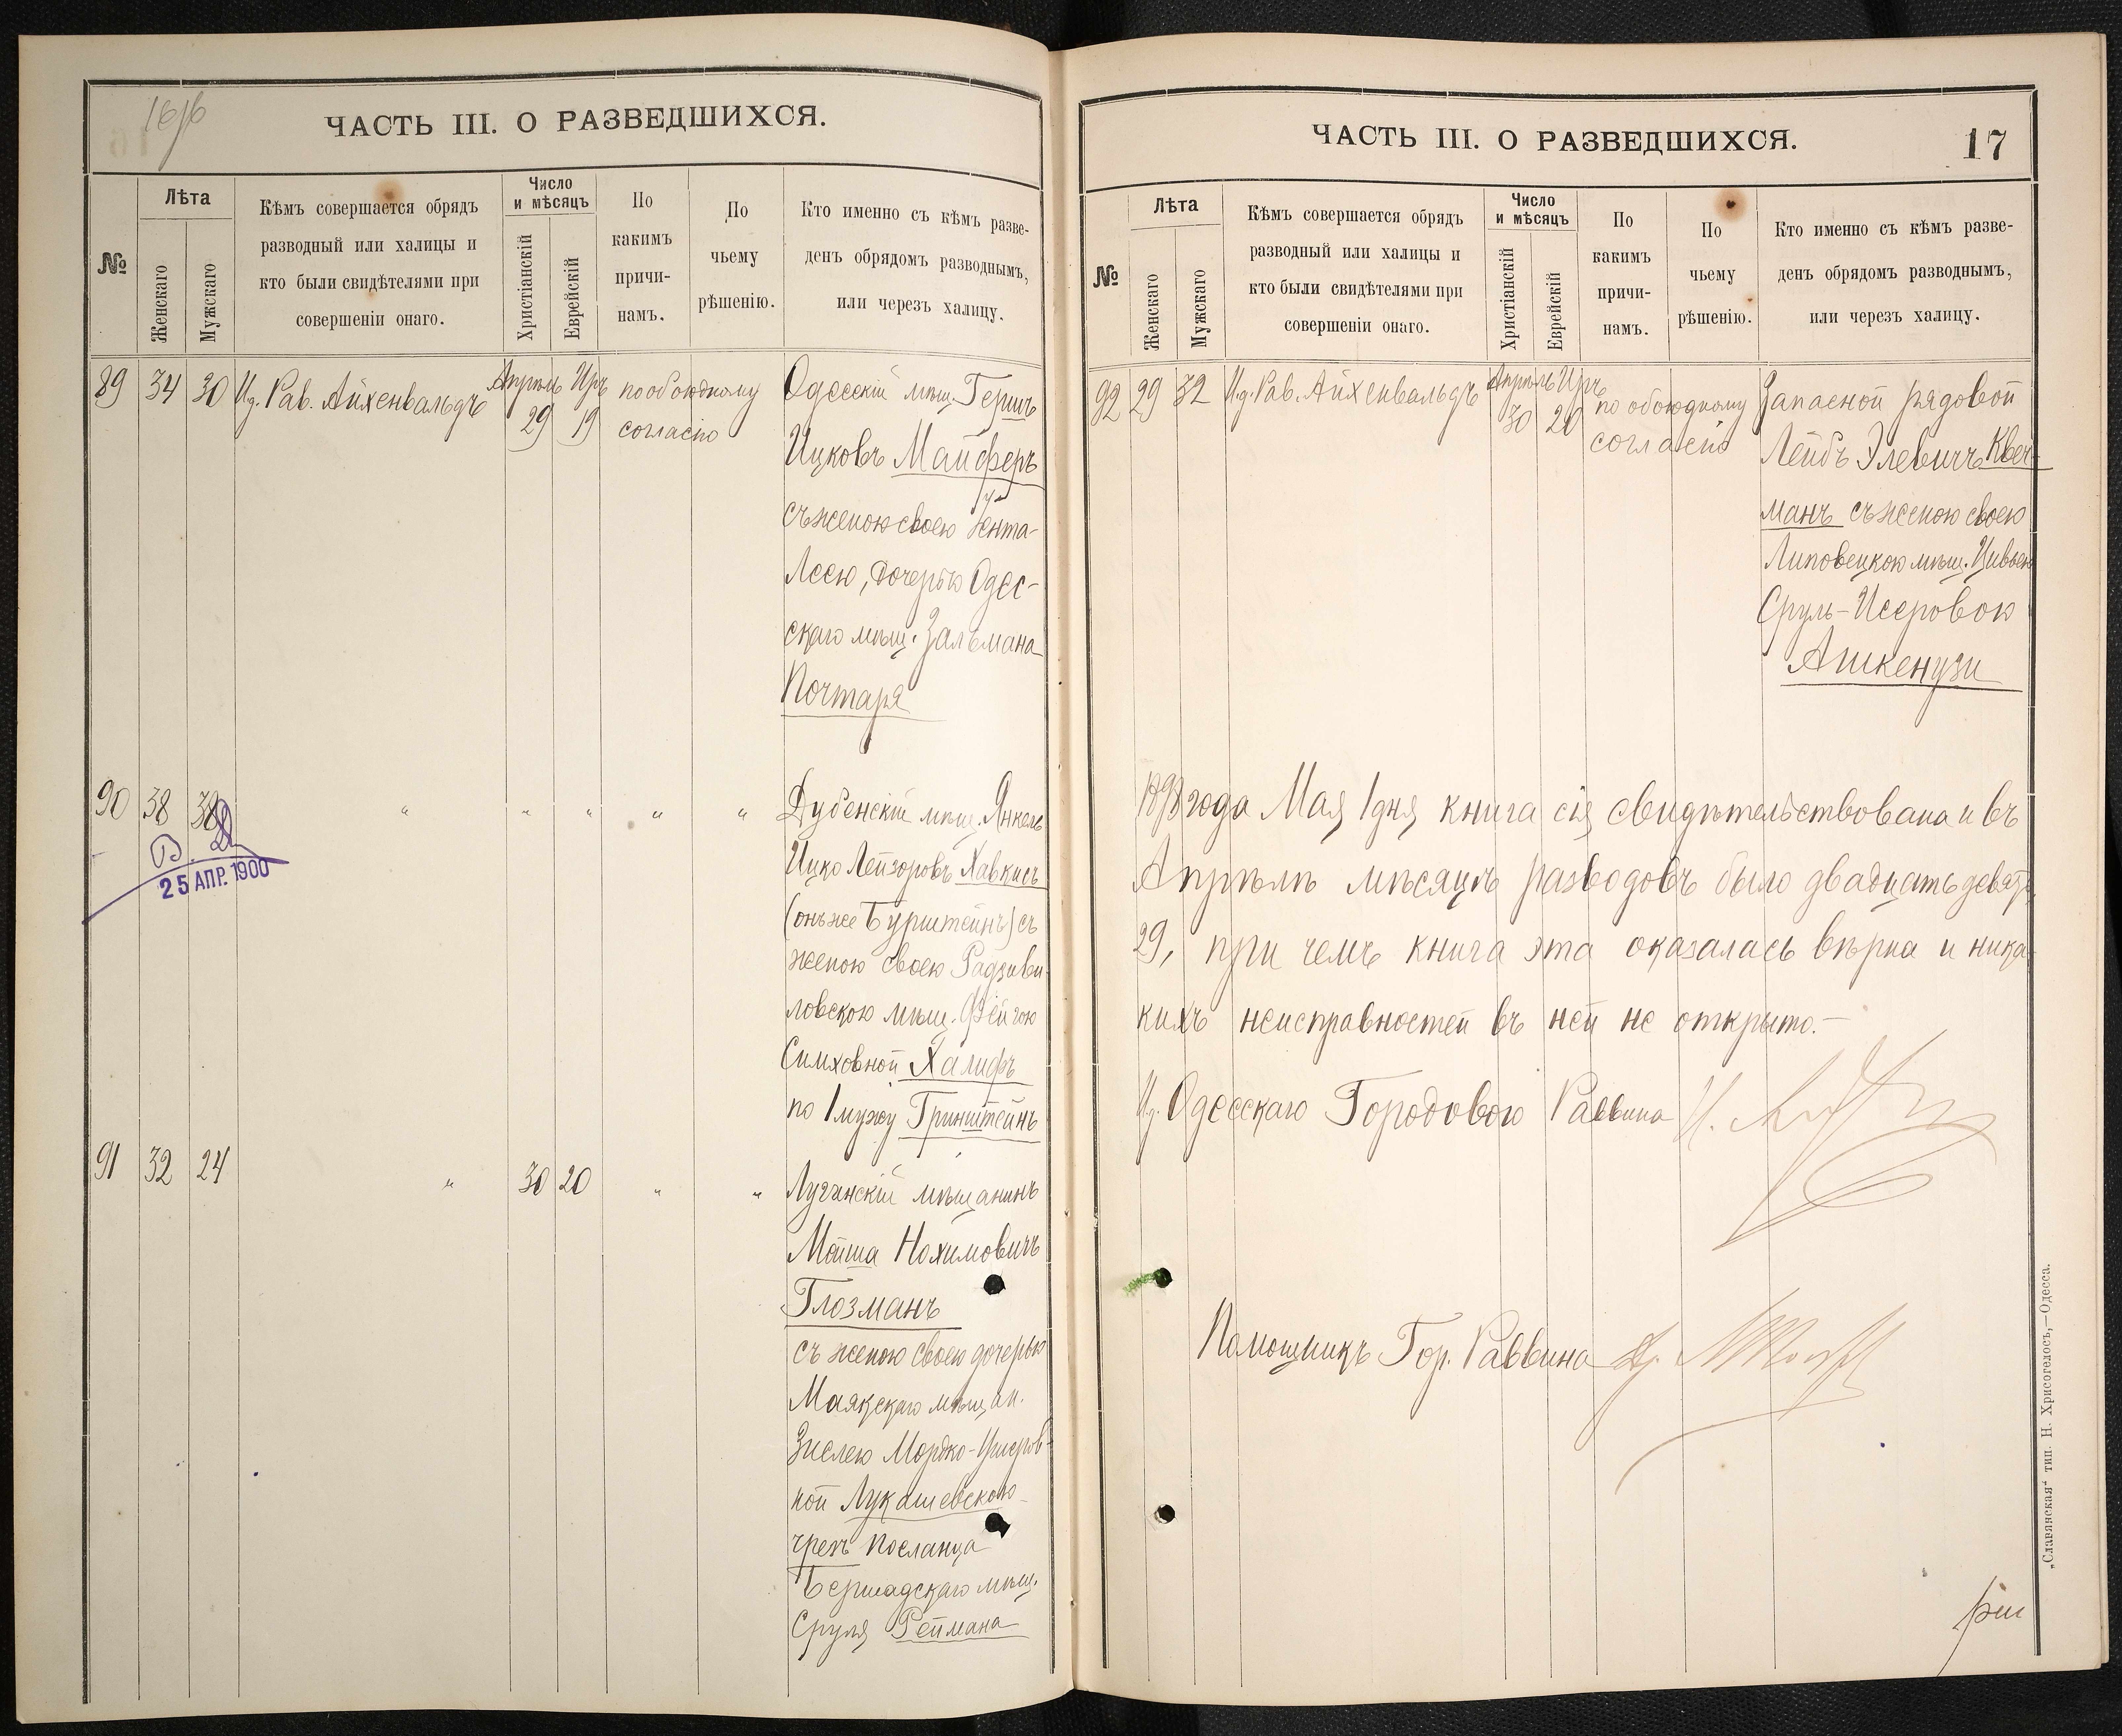 16 об
ЧАСТЬ III. О РАЗВЕДШИХСЯ.
№
Лѣта
Женскаго
Мужскаго
Кѣмъ совершается обрядъ
разводный или халицы и
кто были свидѣтелями при
совершеніи онаго.
Число
и мѣсяцъ
Христіанскій
Еврейскій
По
какимъ
причи-
намъ.
По
чьему
рѣшенію.
Кто именно съ кѣмъ разве-
денъ обрядомъ разводнымъ,
или черезъ халицу.
89 34 30 И.д. Рав. Айхенвальдъ Апрѣль 29 Иръ 19 по обоюдному
согласію
Одесскій мѣщ. Гершъ
Ицковъ Майферъ
съ женою своею Ента-
Леею, дочерью Одес-
скаго мѣщ. Зальмана
Почтаря
90 38 38 " " " " "
25 АПР. 1900
Дубенскій мѣщ. Янкель
Ицко Лейзоровъ Хавкисъ
(онъ же Бурштейнъ) съ
женою своею Радзиви-
ловскою мѣщ. Фейгою
Симховной Халифъ
по 1 мужу Гринштейнъ
91 32 24 " 30 20 " "
Луганскій мѣщанинъ
Мойша Нохимовичъ
Глозманъ
съ женою своею дочерью
Маякскаго мѣщан.
Зислею Мордко-Ушеров-
ной Лукашевскою
чрезъ посланца
Бершадскаго мѣщ.
Сруля Реймана
ЧАСТЬ III. О РАЗВЕДШИХСЯ.
17
№
Лѣта
Женскаго
Мужскаго
Кѣмъ совершается обрядъ
разводный или халицы и
кто были свидѣтелями при
совершеніи онаго.
Число
и мѣсяцъ
Христіанскій
Еврейскій
По
какимъ
причи-
намъ.
По
чьему
рѣшенію.
Кто именно съ кѣмъ разве-
денъ обрядомъ разводнымъ,
или черезъ халицу.
92 29 32 И.д. Рав. Айхенвальдъ Апрѣль 30 Иръ 20 по обоюдному
согласію
Запасной рядовой
Лейбъ Элевичъ Квеч-
манъ съ женою своею
Липовецкою мѣщ. Цивьею
Сруль-Исеровою
Ашкенузи
1898 года Мая 1 дня книга сія свидѣтельствована и въ
Апрѣлѣ мѣсяцѣ разводовъ было двадцать девять
29, при чемъ книга эта оказалась вѣрна и ника-
кихъ неисправностей въ ней не открыто.—
И.д. Одесскаго Городовою Раввина
Помощникъ Гор. Раввина
„Славянская“ тип. Н. Хрисогелосъ,—Одесса.